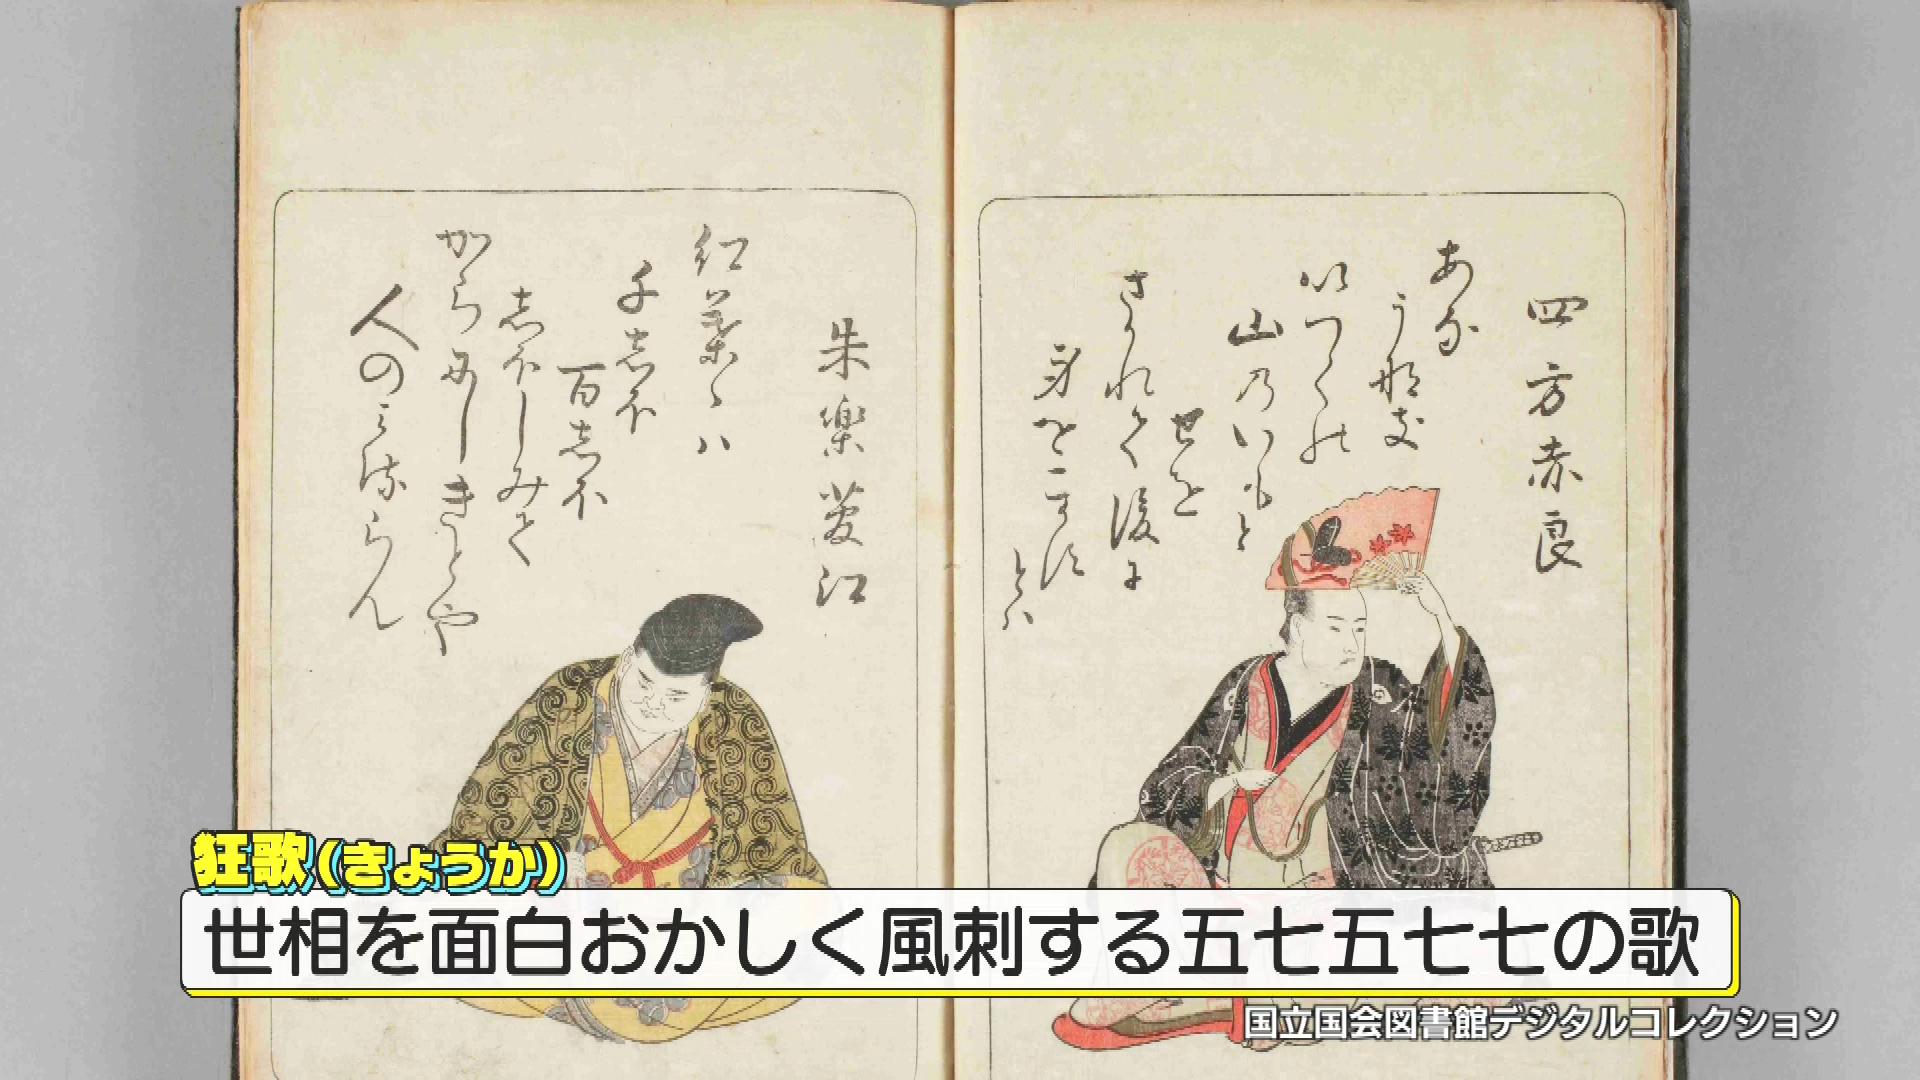 四方赤良
あな
うなき
いつくの
山のいもと
せを
さかれて後に
身をこかす
とハ
朱楽菅江
紅葉ゝハ
千しほ
百しほ
しほしみて
からにしきとや
人のみるらん
狂歌(きょうか)
世相を面白おかしく風刺する五七五七七の歌
国立国会図書館デジタルコレクション